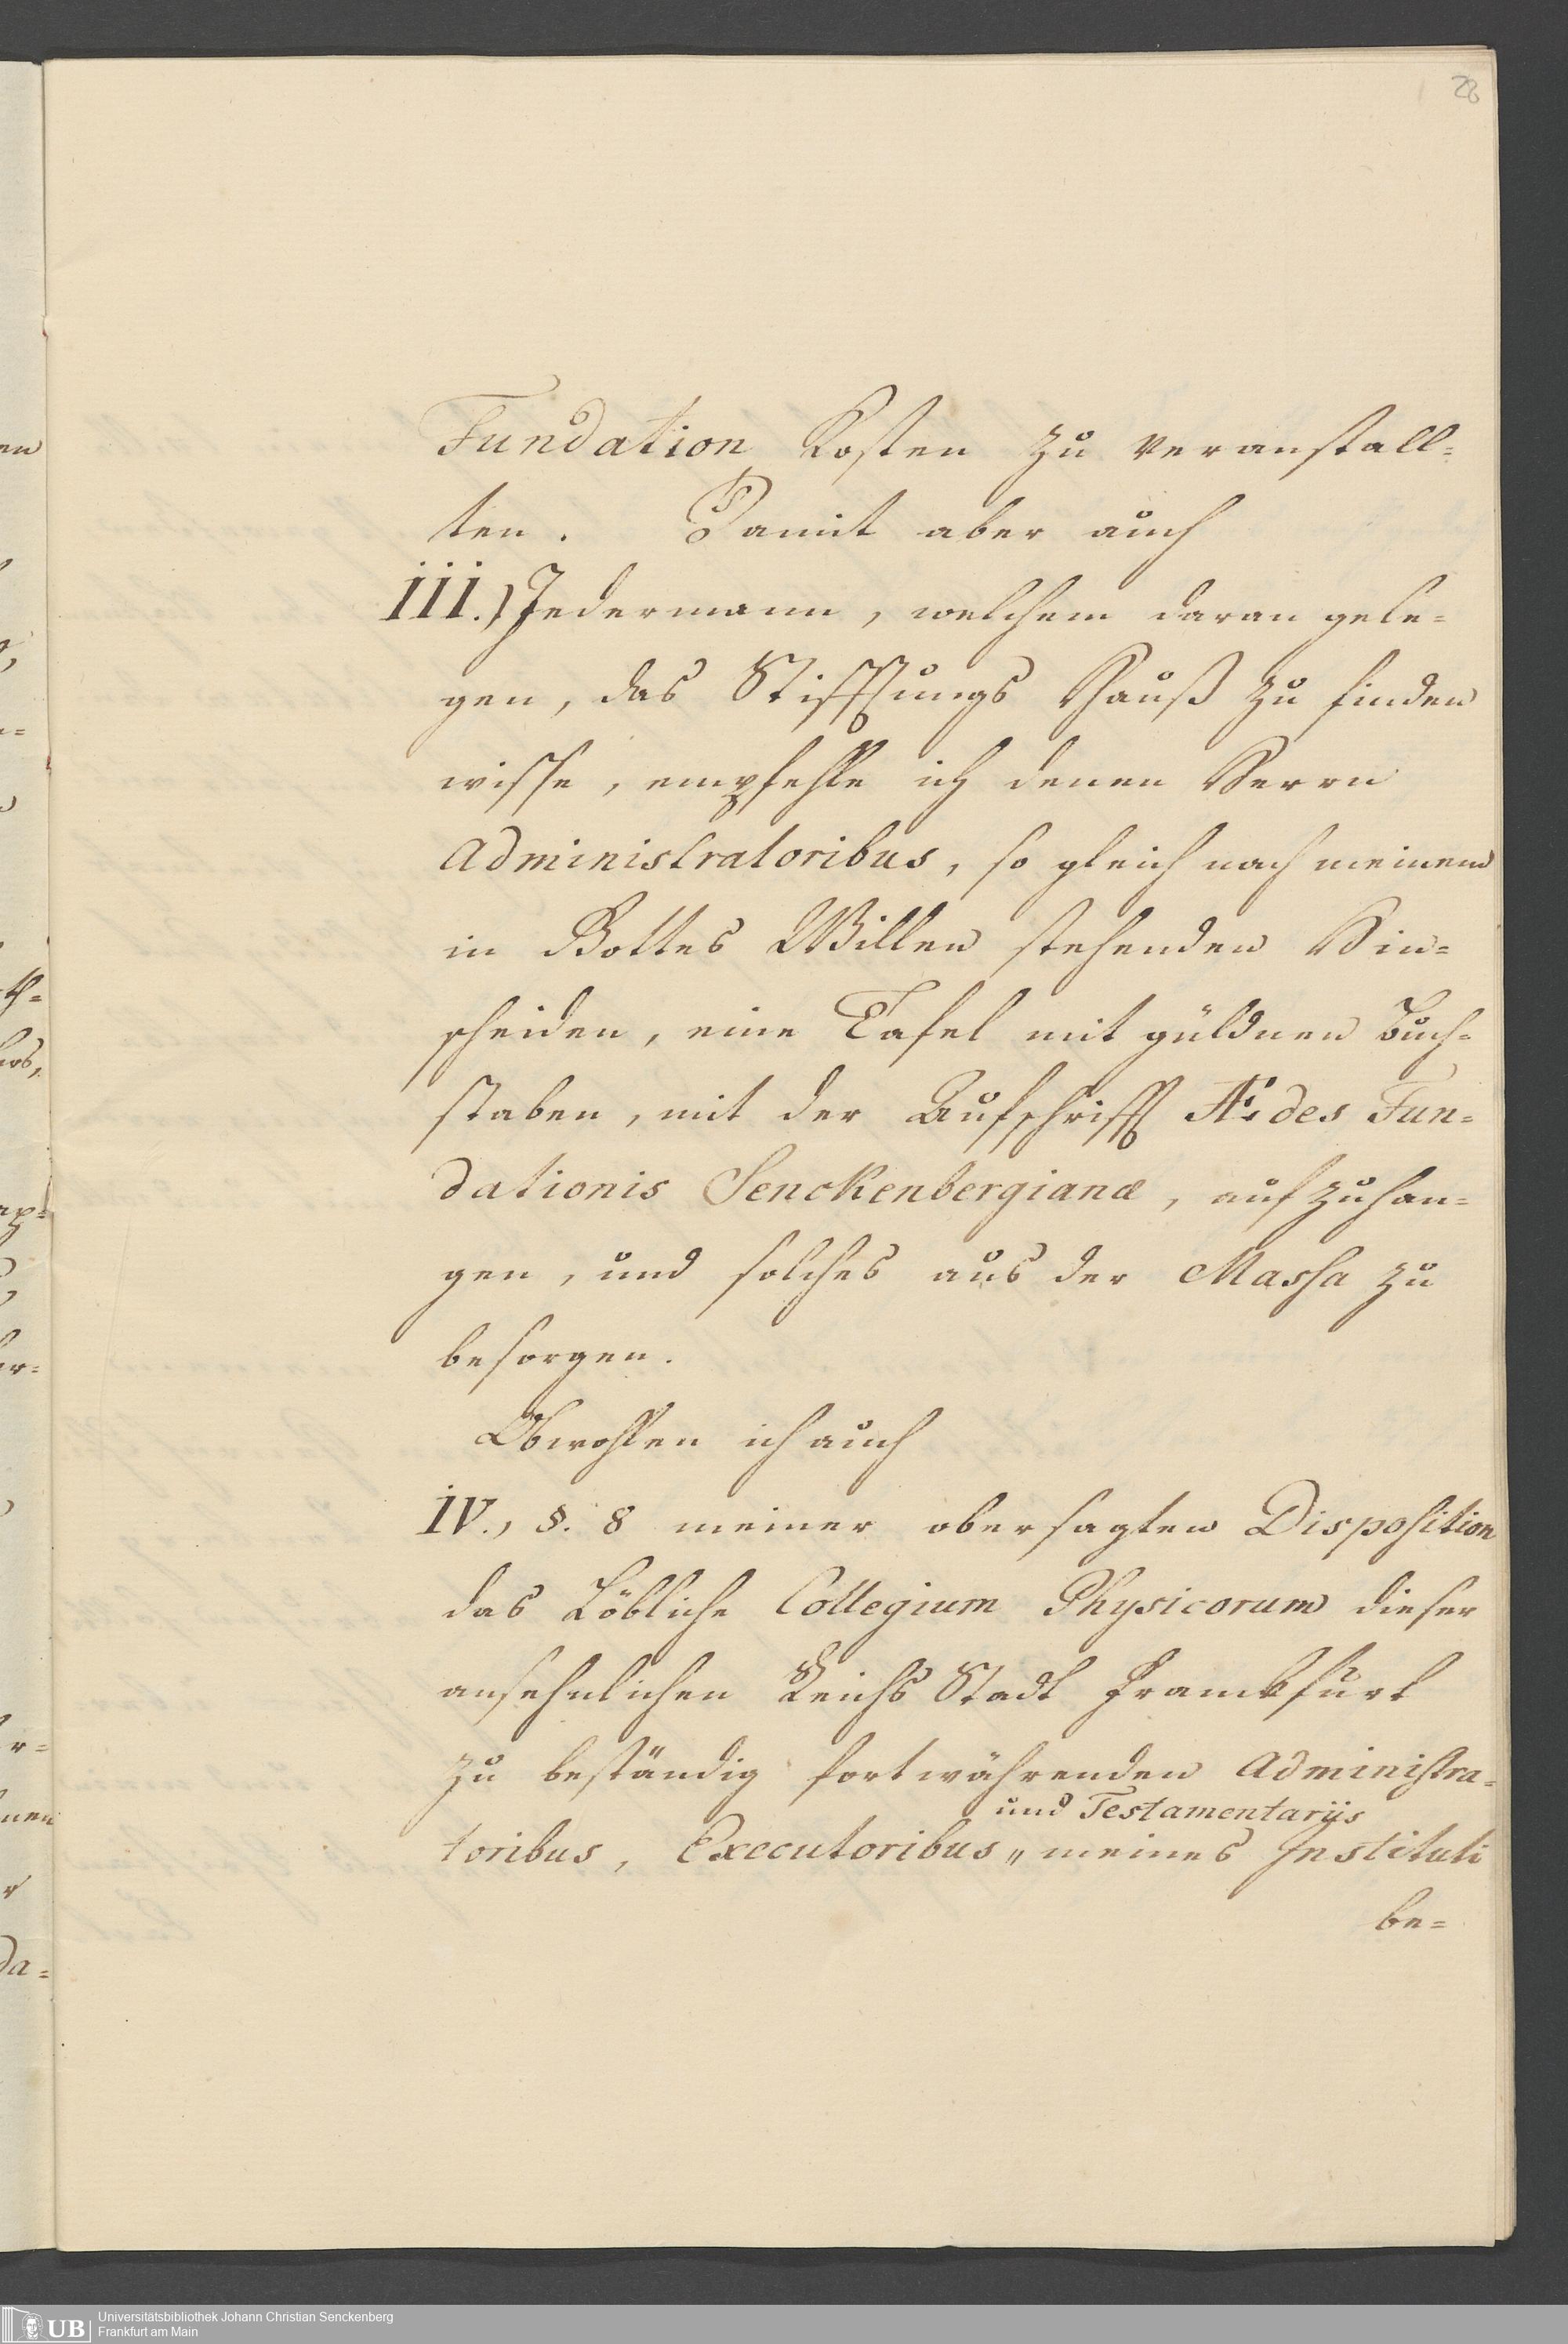 28
Fundation Kosten zu veranstall=
ten. Damit aber auch
III.) Jedermann, welchem daran gele=
gen, das Stifftungs Hauß zu finden
wisse, empfehle ich denen Herrn
Administratoribus, so gleich nach meinem
in Gottes Willen stehenden Hin=
scheiden, eine Tafel mit güldnen Buch=
staben, mit der Aufschrifft Ædes Fun=
dationis Senckenbergianæ, aufzuhan=
gen, und solches aus der Massa zu
besorgen.
Obwohlen ich auch
IV., §. 8 meiner obersagten Disposition
das Löbliche Collegium Physicorum dieser
ansehnlichen Reichs Stadt Franckfurt
zu beständig fortwährenden Administra=
und Testamentariis
toribus, Executoribus „ meines Instituti
be=
UB
Universitätsbibliothek Johann Christian Senckenberg
Frankfurt am Main